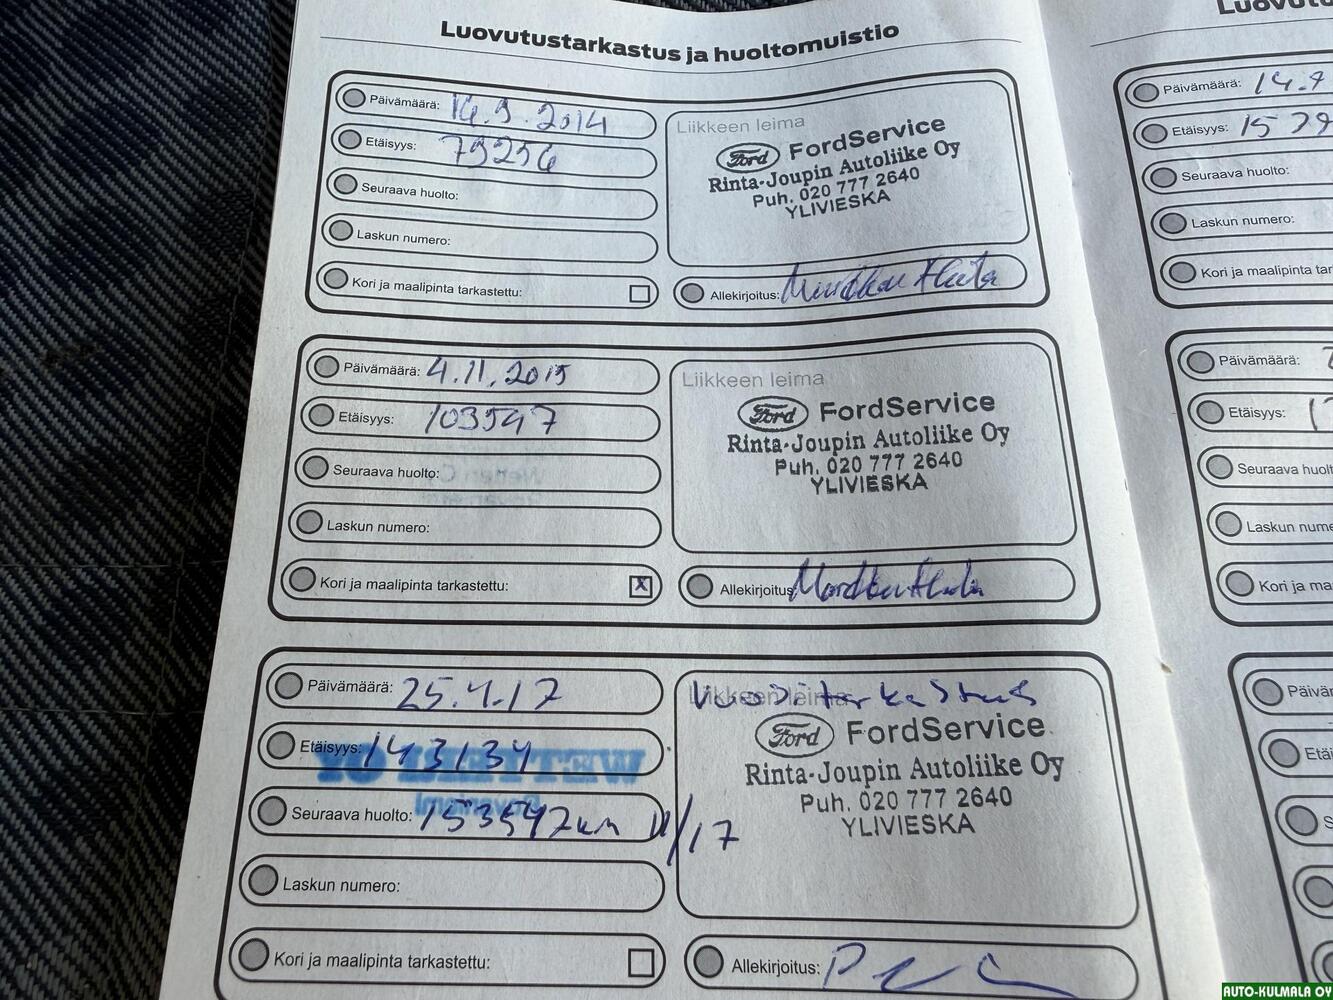 Luovutustarkastus ja huoltomuistio
Päivämäärä: 14.9.2014
Etäisyys: 79256
Seuraava huolto:
Laskun numero:
Kori ja maalipinta tarkastettu:
Liikkeen leima
Ford FordService
Rinta-Joupin Autoliike Oy
Puh. 020 777 2640
YLIVIESKA
Allekirjoitus:
Päivämäärä: 4.11.2015
Etäisyys: 103547
Seuraava huolto:
Laskun numero:
Kori ja maalipinta tarkastettu: X
Liikkeen leima
Ford FordService
Rinta-Joupin Autoliike Oy
Puh. 020 777 2640
YLIVIESKA
Allekirjoitus:
Päivämäärä: 25.4.17
Etäisyys: 143134
Seuraava huolto: 153547km 11/17
Laskun numero:
Kori ja maalipinta tarkastettu:
Liikkeen leima
Vuositarkastus
Ford FordService
Rinta-Joupin Autoliike Oy
Puh. 020 777 2640
YLIVIESKA
Allekirjoitus:
Päivämäärä:
Etäisyys:
Seuraava huolto:
Laskun numero:
Kori ja maalipinta tar
Päivämäärä:
Etäisyys:
Seuraava huolt
Laskun nume
Kori ja ma
Päivär
Etäi
S
AUTO-KULMALA OY